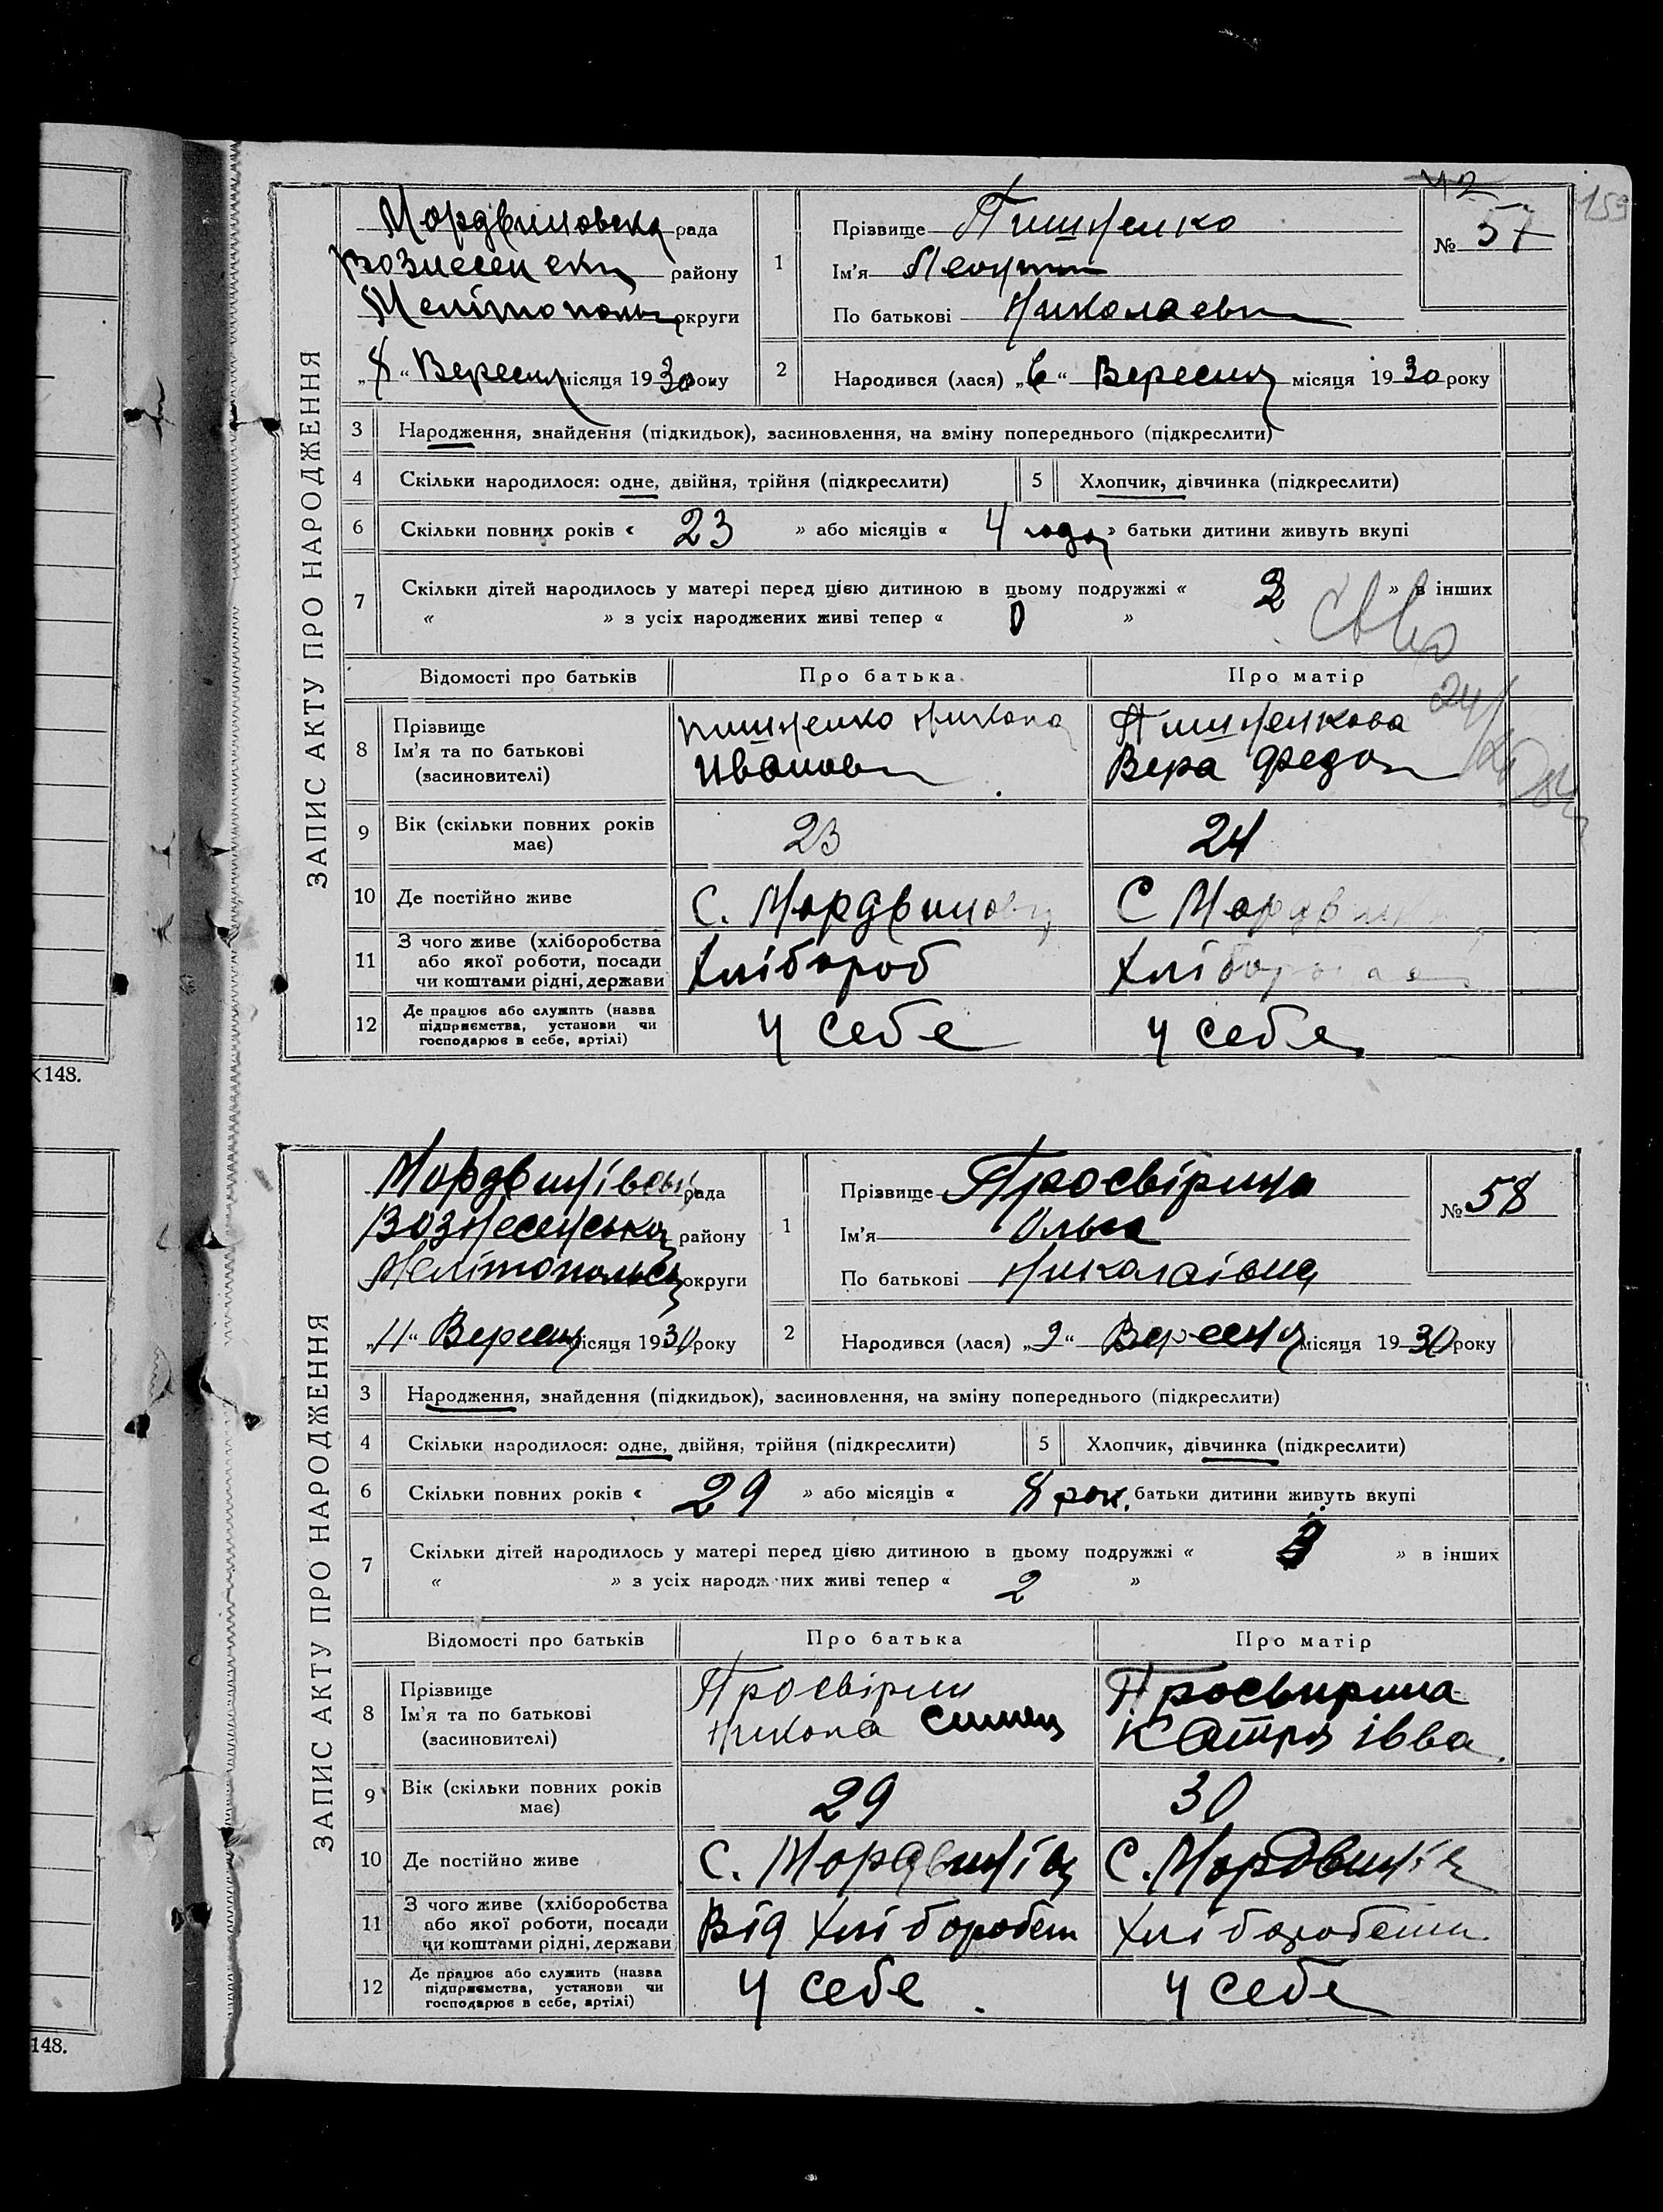 153
42
ЗАПИС АКТУ ПРО НАРОДЖЕННЯ
Мордвиновска рада
Вознесенски району
Мелітополь округи
„8“ Вересня місяця 1930 року
1
Прізвище Пишненко
Ім'я
По батькові Николаеви
№ 57
2
Народився (лася) „6“ Вересня місяця 1930 року
3 Народження, знайдення (підкидьок), засиновлення, на вміну попереднього (підкреслити)
4 Скільки народилося: одне, двійня, трійня (підкреслити)
5 Хлопчик, дівчинка (підкреслити)
6 Скільки повних років « 23 » або місяців « 4 года » батьки дитини живуть вкупі
7 Скільки дітей народилось у матері перед цією дитиною в цьому подружжі « 2 » в інших
« » з усіх народжених живі тепер « 0 »
Відомості про батьків
Про батька
Про матір
8
Прізвище
Ім'я та по батькові
(засиновителі)
Пишненко Никола
Иванови
Пишненкова
Вера Федо
9 Вік (скільки повних років має)
23
24
10 Де постійно живе
С. Мордвинов
С Мордвин
11 З чого живе (хліборобства
або якої роботи, посади
чи коштами рідні, держави
Хлібороб
12 Де працює або служить (назва
підприємства, установи чи
господарює в себе, артілі)
У себе
У себе
Х148.
ЗАПИС АКТУ ПРО НАРОДЖЕННЯ
Мордвинівськ рада
Вознесенська району
Мелітопольськ округи
„11“ Вересня місяця 1930 року
1
Прізвище Просвірина
Ім'я Ольга
По батькові Николаівна
№ 58
2
Народився (лася) „9“ Вересня місяця 1930 року
3 Народження, знайдення (підкидьок), засиновлення, на зміну попереднього (підкреслити)
4 Скільки народилося: одне, двійня, трійня (підкреслити)
5 Хлопчик, дівчинка (підкреслити)
6 Скільки повних років « 29 » або місяців « 8 рок. батьки дитини живуть вкупі
7 Скільки дітей народилось у матері перед цією дитиною в цьому подружжі « 3 » в інших
« » з усіх народжених живі тепер « 2 »
Відомості про батьків
Про батька
Про матір
8
Прізвище
Ім'я та по батькові
(засиновителі)
Просвірин
Никола
Просвирина
Катря івва
9 Вік (скільки повних років має)
29
30
10 Де постійно живе
С. Мордвинів
С. Мордвинів
11 З чого живе (хліборобства
або якої роботи, посади
чи коштами рідні, держави
Від Хліборобств
Хліборобства
12 Де працює або служить (назва
підприємства, установи чи
господарює в себе, артілі)
У себе
У себе
148.